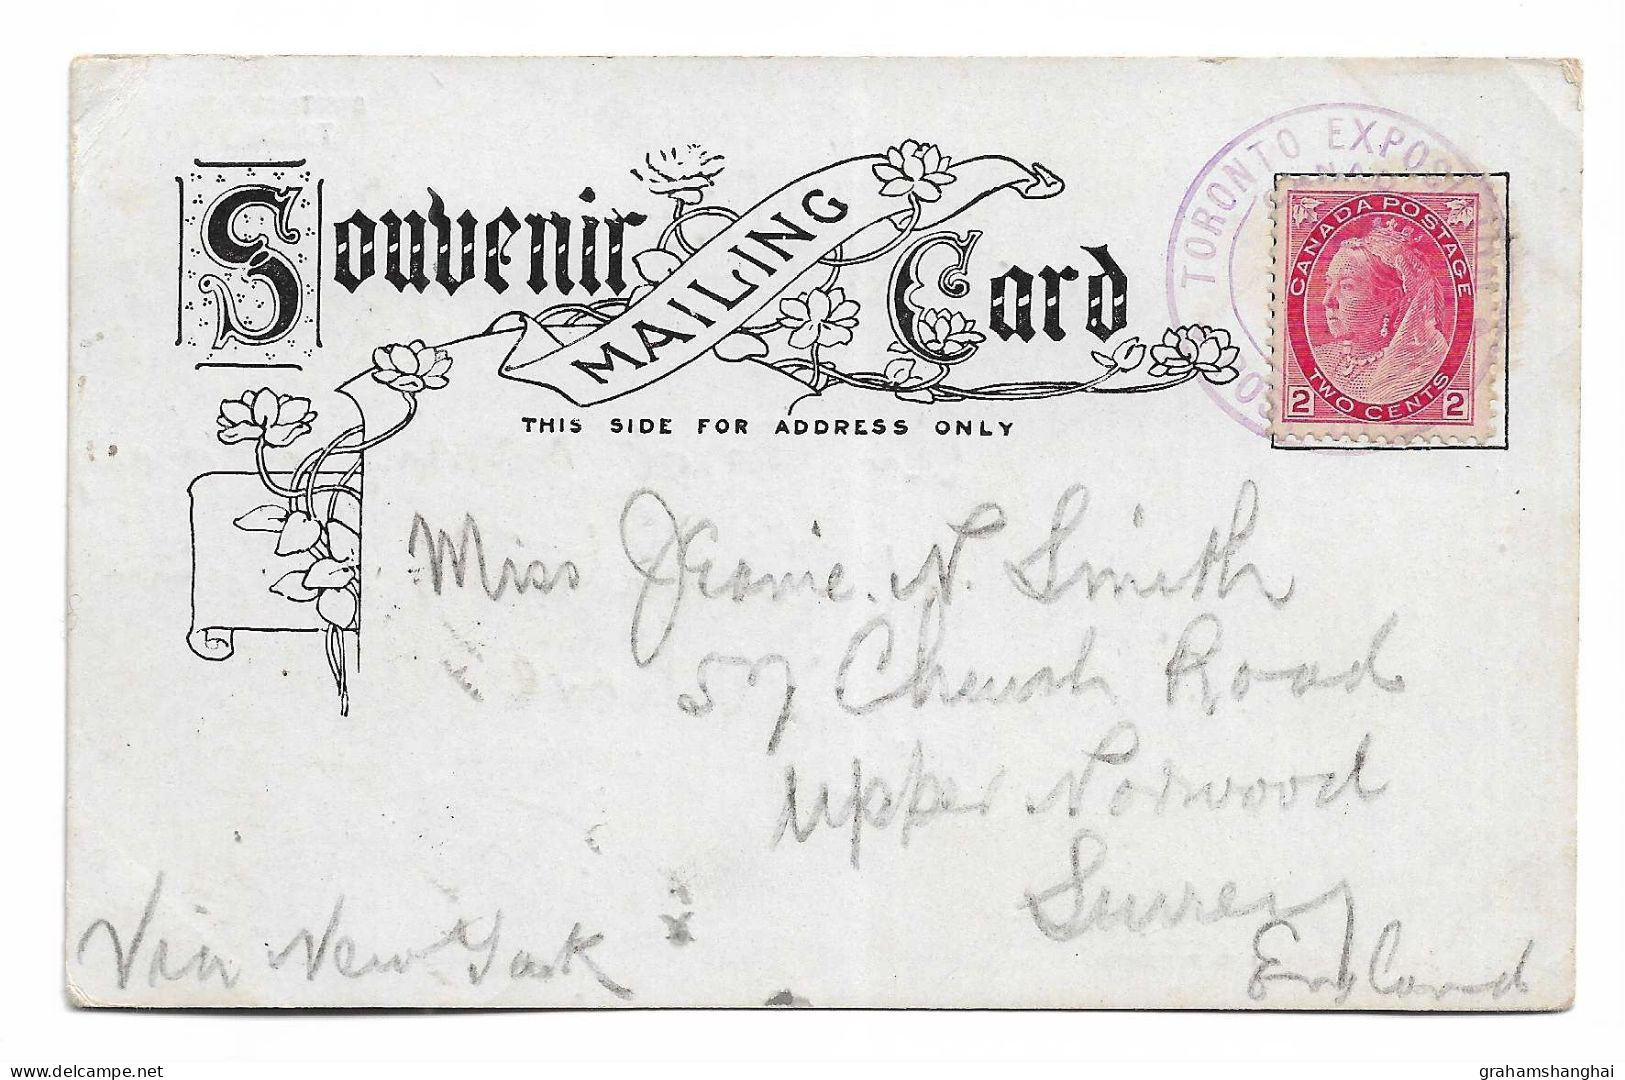 Souvenir MAILING Card
THIS SIDE FOR ADDRESS ONLY
TORONTO EXPOSI
CANADA POSTAGE
2 TWO CENTS 2
Miss Jeanie. N. Smith
57 Church Road
Upper Norwood
Surrey
England
Via New York
www.delcampe.net
grahamshanghai